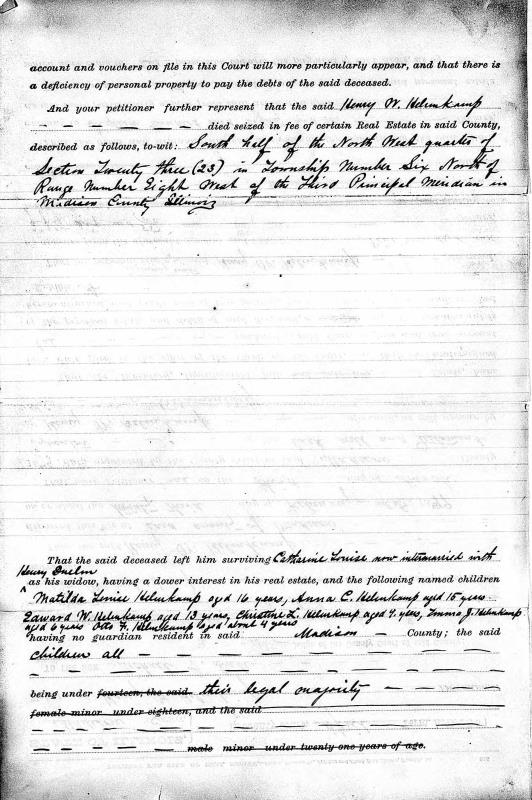 account and vouchers on file in this Court will more particularly appear, and that there is
a deficiency of personal property to pay the debts of the said deceased.
And your petitioner further represent that the said Henry W. Helmkamp
died seized in fee of certain Real Estate in said County,
described as follows, to-wit: South half of the North West quarter of
Section Twenty three (23) in Township Number Six North of
Range Number Eight West of the Third Principal Meridian in
Madison County Illinois
That the said deceased left him surviving Catharine Louise now intermarried with
Henry
as his widow, having a dower interest in his real estate, and the following named children
Matilda Louise Helmkamp aged 16 years, Anna C. Helmkamp aged 15 years
Edward W. Helmkamp aged 13 years, Christine L. Helmkamp aged 9 years, Emma J. Helmkamp
aged 6 years Otto F. Helmkamp aged about 4 years
having no guardian resident in said Madison County; the said
children all
being under fourteen, the said their legal majority
female minor under eighteen, and the said
male minor under twenty-one years of age.